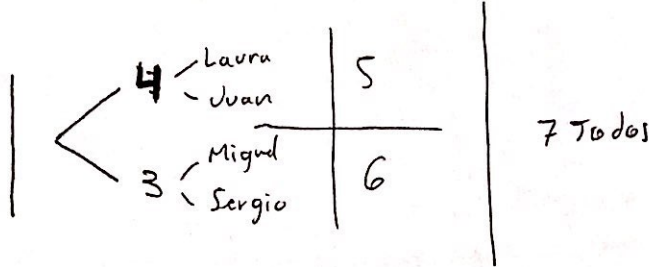 4
Laura
Juan
5
3
Miguel
Sergio
6
7 Todos